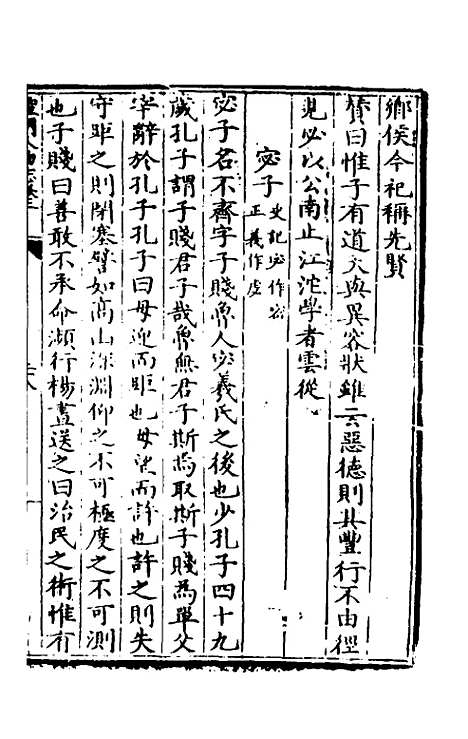 鄉侯今祀稱先賢
贊曰惟子有道天與異容狀雖云惡德則其豐行不由徑
見必以公南止江沱學者雲從
宓子 史記宓作密正義作虙
宓子名不齊字子賤魯人宓羲氏之後也少孔子四十九
歲孔子謂子賤君子哉魯無君子斯焉取斯子賤為單父
宰辭於孔子孔子曰毋迎而距也毋望而許也許之則失
守距之則閉塞譬如高山深淵仰之不可極度之不可測
也子賤曰善敢不承命瀕行楊晝送之曰治民之術惟有
聖門人物志卷三